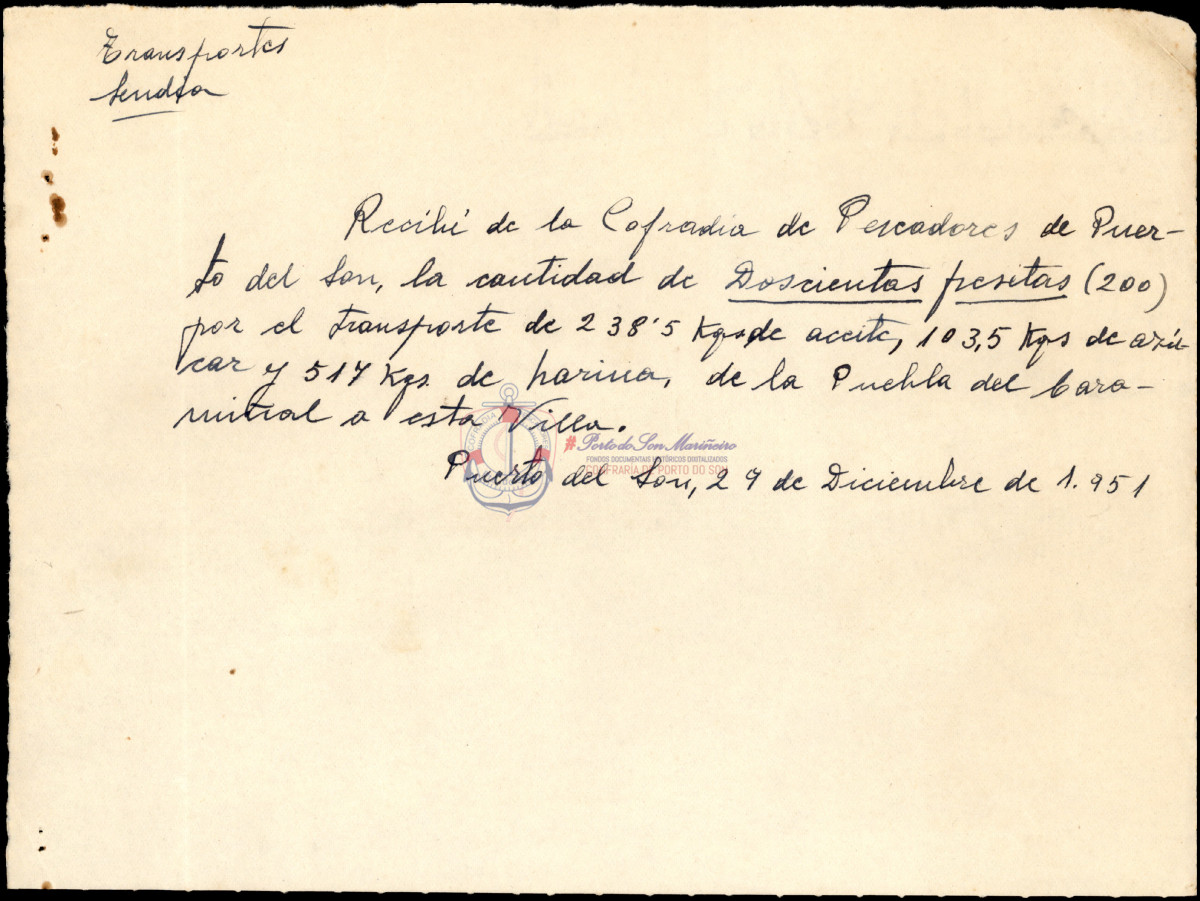 Transportes
Sendía
Recibí de la Cofradia de Pescadores de Puer-
to del Son, la cantidad de Doscientas pesetas (200)
por el transporte de 238'5 Kgs de aceite, 103,5 Kgs de azú-
car y 517 Kgs. de harina, de la Puebla del Cara-
miñal a esta Villa.
#Porto do Son Mariñeiro
FONDOS DOCUMENTAIS HISTÓRICOS DIXITALIZADOS
CONFRARÍA DE PORTO DO SON
Puerto del Son, 29 de Diciembre de 1.951